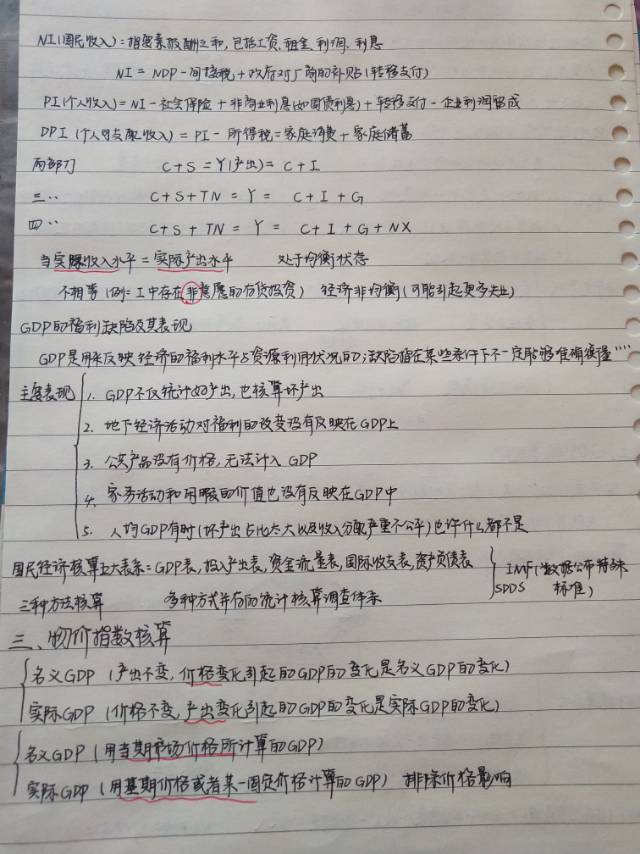 NI(国民收入)：指要素报酬之和,包括工资、租金、利润、利息
NI = NDP - 间接税 + 政府对厂商的补贴(转移支付)
PI(个人收入) = NI - 社会保险 + 非商业利息(如国债利息) + 转移支付 - 企业利润留成
DPI (个人可支配收入) = PI - 所得税 = 家庭消费 + 家庭储蓄
两部门 C+S = Y(产出) = C+I
三·· C+S+TN = Y = C+I+G
四·· C+S+TN = Y = C+I+G+NX
当实际收入水平 = 实际产出水平 处于均衡状态
不相等 (例: I中存在非意愿的存货投资) 经济非均衡(可能引起更多失业)
GDP的福利缺陷及其表现
GDP是用来反映经济的福利水平与资源利用状况的;缺陷指在某些条件下不一定能够准确衡量""
主要表现 1. GDP不仅统计好产出,也核算坏产出
2. 地下经济活动对福利的改变没有反映在GDP上
3. 公共产品没有价格,无法计入GDP
4. 家务活动和闲暇的价值也没有反映在GDP中
5. 人均GDP有时(坏产出占比太大以及收入分配严重不公平)也许什么都不是
国民经济核算五大表系: GDP表,投入产出表,资金流量表,国际收支表,资产负债表 IMF(数据公布特殊
三种方法核算 多种方式并存的统计核算调查体系 SDDS 标准)
三、物价指数核算
名义GDP (产出不变,价格变化引起的GDP的变化是名义GDP的变化)
实际GDP (价格不变,产出变化引起的GDP的变化是实际GDP的变化)
名义GDP (用当期市场价格所计算的GDP)
实际GDP (用基期价格或者某一固定价格计算的GDP) 排除价格影响